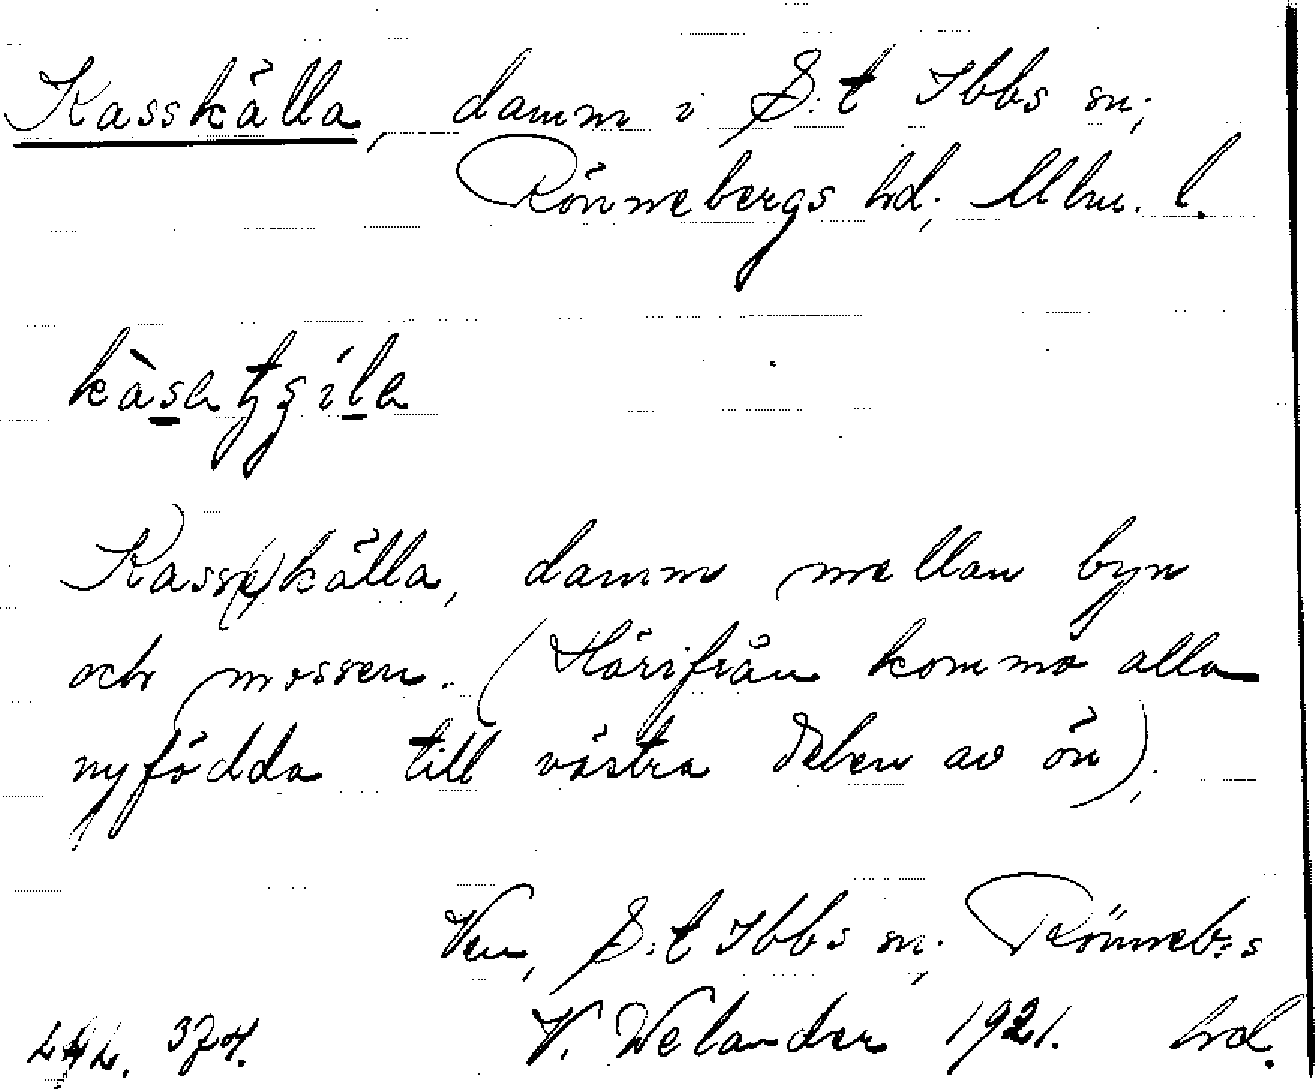 Kasskälla, damm i S:t Ibbs sn;
Rönnebergs hd; Mlm. l.
kàsatʂila
Kass(e)källa, damm mellan byn
och mossen. (Härifrån komma alla
nyfödda till västra delen av ön);
Ven, S:t Ibbs sn; Rönneb:s
374. V. Welander 1921. hd.